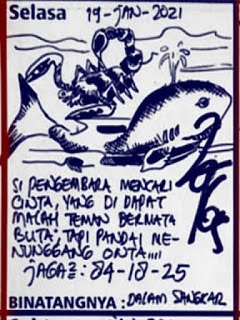 Selasa 19-JAN-2021
SI PENGEMBARA MENCARI
CINTA, YANG DI DAPAT
MALAH TEMAN BERMATA
BUTA, TAPI PANDAI ME-
NUNGGANG ONTA....
JAGA2: 84-18-25
BINATANGNYA : DALAM SANGKAR